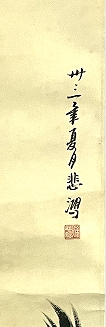 卅三年夏月悲鴻